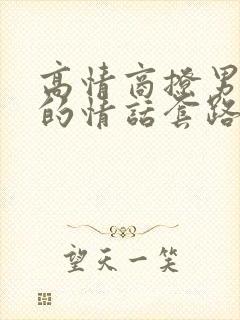 高情商撩男
的情话套路
望天一笑